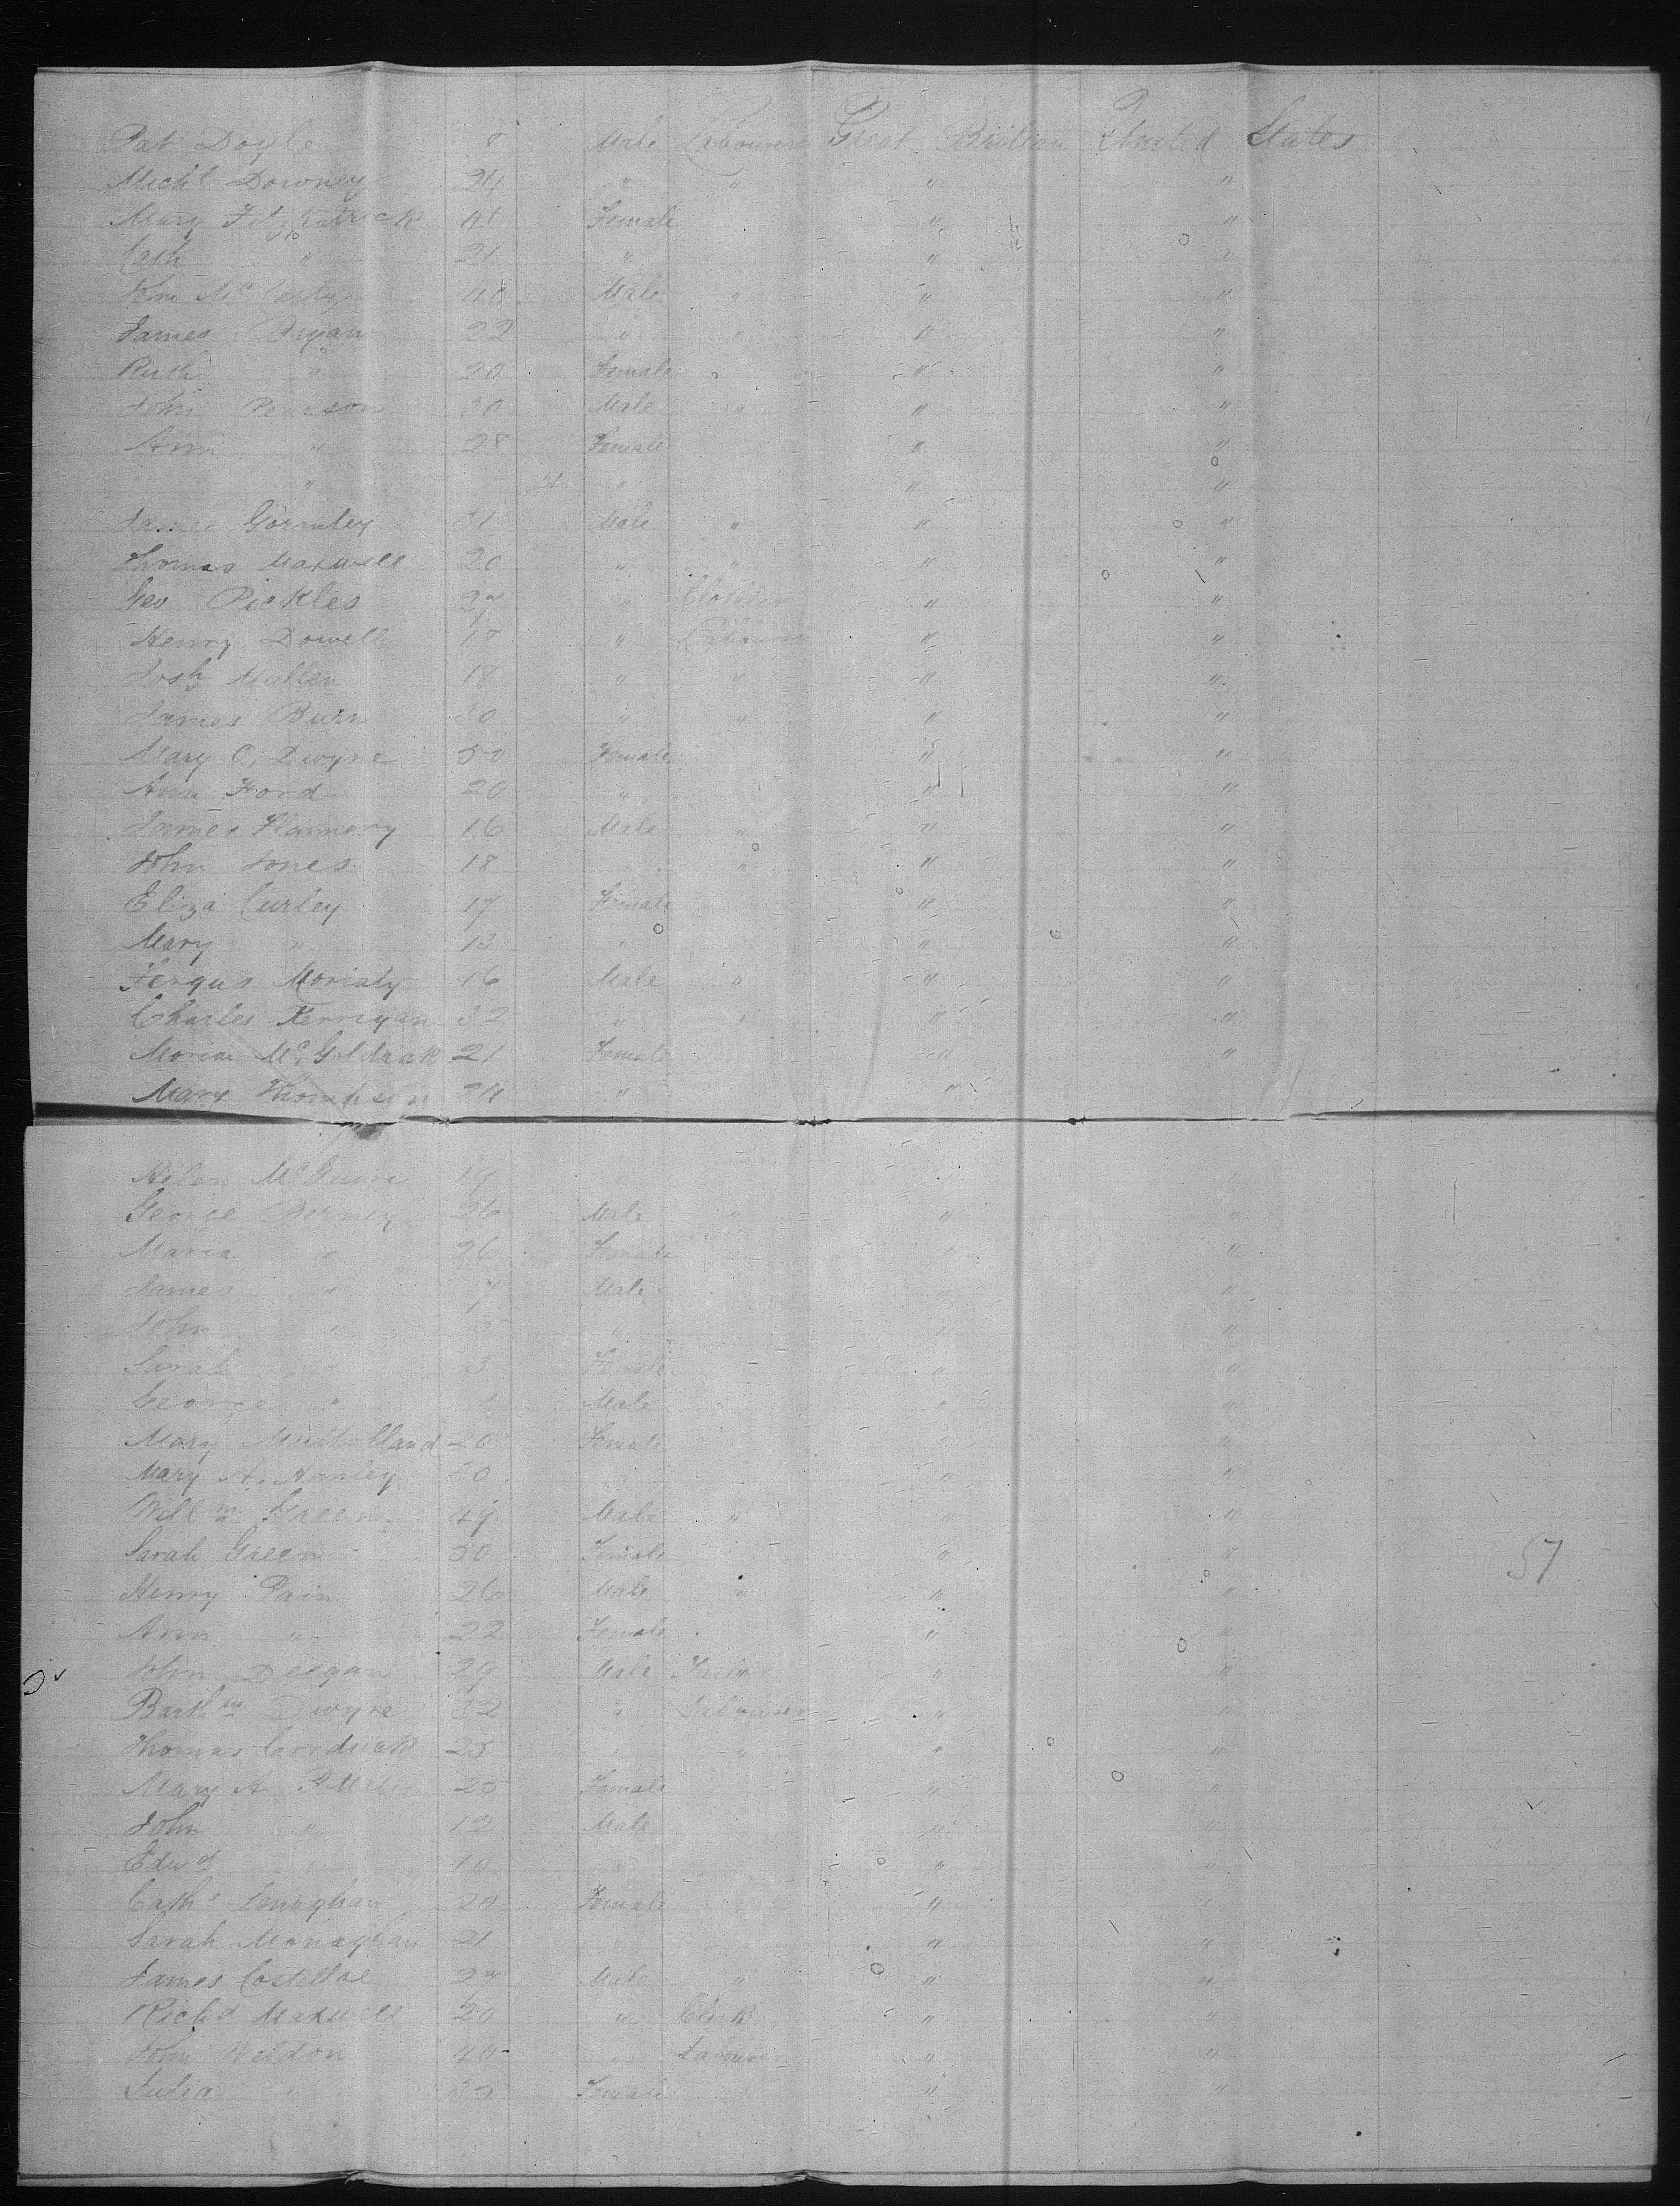 Pat Doyle 8 Male Labourer Great Brittian United States
Michl Downey 24 " " " "
Mary Fitzpatrick 46 Female " "
Cath " 21 " " "
Wm McCarty 40 Male " " "
James Bryan 22 " " " "
Ruth " 20 Female " "
John Pearson 30 Male " " "
Ann " 28 Female " "
" 4 " " "
James Gormley 31 Male " " "
Thomas Maxwell 20 " " " "
Geo Pickles 27 " Clothier " "
Henry Dowell 17 " Labourer " "
Josh Mullen 18 " " " "
James Burn 30 " " " "
Mary O. Dwyre 50 Female " "
Ann Ford 20 " " "
James Flannery 16 Male " " "
John Jones 18 " " "
Eliza Curley 17 Female " "
Mary " 13 " " "
Fergus Moriaty 16 Male " " "
Charles Kerrigan 32 " " " "
McGoldrak 21 Female " "
Mary Thompson 24 " "
Helen McGuire 19 " "
George Berney 26 Male " " "
Maria " 26 Female " "
James " 7 Male " "
John " 5 " " "
Sarah " 3 Female " "
George " 1 Male " "
Mary Mulholland 26 Female " "
Mary A. 30 " " "
Willm Green 49 Male " " "
Sarah Green 50 Female " "
57
Henry Pain 26 Male " " "
Ann " 22 Female " "
John Deegan 29 Male " "
Barthw Dwyre 32 " Labourer " "
Thomas 25 " " " "
Mary A. 25 Female " "
John " 12 Male " "
Edwd " 10 " " "
Cathe Lenaghan 20 Female " "
Sarah Monaghan 21 " " "
James Costelloe 27 Male " " "
Richd Maxwell 20 " Clerk " "
John Weldon 40 " Labourer " "
Julia " 35 Female " "